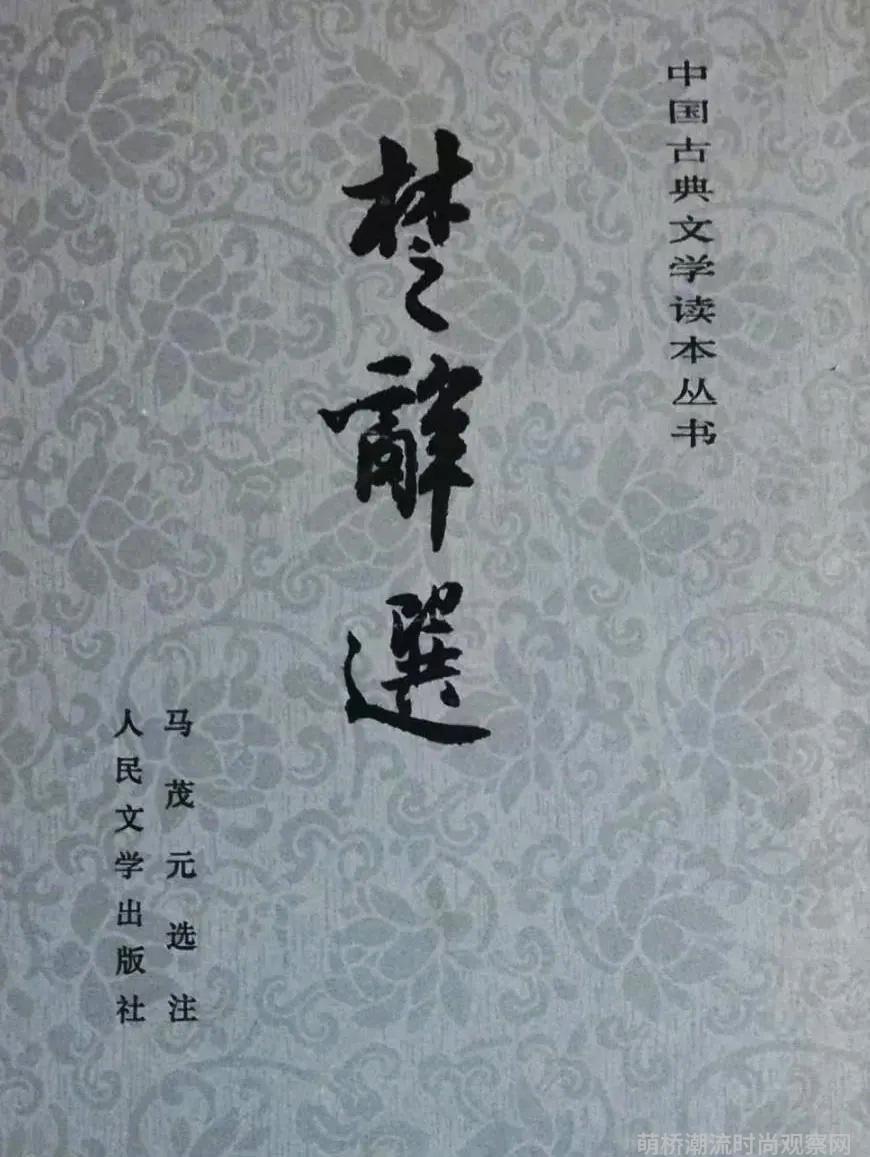 中国古典文学读本丛书
楚辭選
马茂元选注
人民文学出版社
萌桥潮流时尚观察网